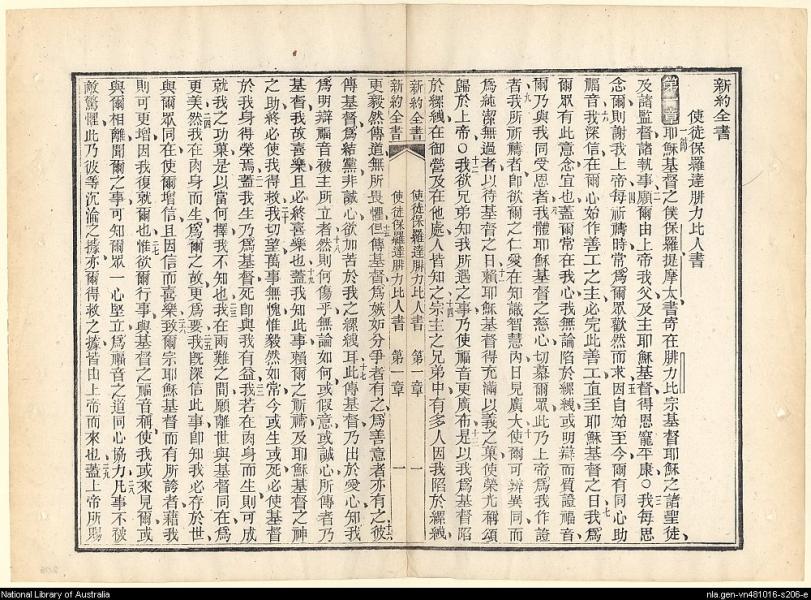 新約全書
使徒保羅達腓力比人書
第一章 一節 耶穌基督之僕保羅提摩太書寄在腓力比宗基督耶穌之諸聖徒
及諸監督諸執事願爾由上帝我父及主耶穌基督得恩寵平康○我每思
念爾則謝我上帝每祈禱時常爲爾眾歡然而求因自始至今爾有同心助
福音我深信在爾心始作善工之主必完此善工直至耶穌基督之日我爲
爾眾有此意念宜也蓋爾常在我心我無論陷於縲絏或明辯而質證福音
爾乃與我同受恩者我體耶穌基督之慈心切慕爾眾此乃上帝爲我作證
者我所祈禱者卽欲爾之仁愛在知識智慧內日見廣大使爾可辨異同而
爲純潔無過者以待基督之日賴耶穌基督得充滿以義之果使榮光稱頌
歸於上帝○我欲兄弟知我所遇之事乃使福音更廣布是以我爲基督陷
於縲絏在御營及在他處人皆知之宗主之兄弟中有多人因我陷於縲絏
新約全書 使徒保羅達腓力比人書 第一章 一
新約全書 使徒保羅達腓力比人書 第一章 一
更毅然傳道無所畏懼但傳基督爲嫉妬分爭者有之爲善意者亦有之彼
傳基督爲結黨非誠心欲加苦於我之縲絏耳此傳基督乃出於愛心知我
爲明辯福音被主所立者然則何傷乎無論如何或假意或誠心所傳者乃
基督我故喜樂且必終喜樂也蓋我知此事賴爾之祈禱及耶穌基督之神
之助終必使我得救我切望萬事無愧惟毅然如常今或生或死必使基督
於我身得榮焉蓋我生乃爲基督死卽與我有益我若在肉身而生則可成
就我之功菓是以當何擇我不知也我在兩難之間願離世與基督同在爲
更美然我在肉身而生爲爾之故更爲要我既深信此事卽知我必存於世
與爾眾同在使爾增信且因信而喜樂致爾宗耶穌基督而有所誇者藉我
則可更增因我復就爾也惟欲爾行事與基督之福音稱使我或來見爾或
與爾相離聞爾之事可知爾眾一心堅立爲福音之道同心協力凡事不被
敵驚懼此乃彼等沉淪之據亦爾得救之據皆由上帝而來也蓋上帝所賜
National Library of Australia
nla.gen-vn481016-s206-e